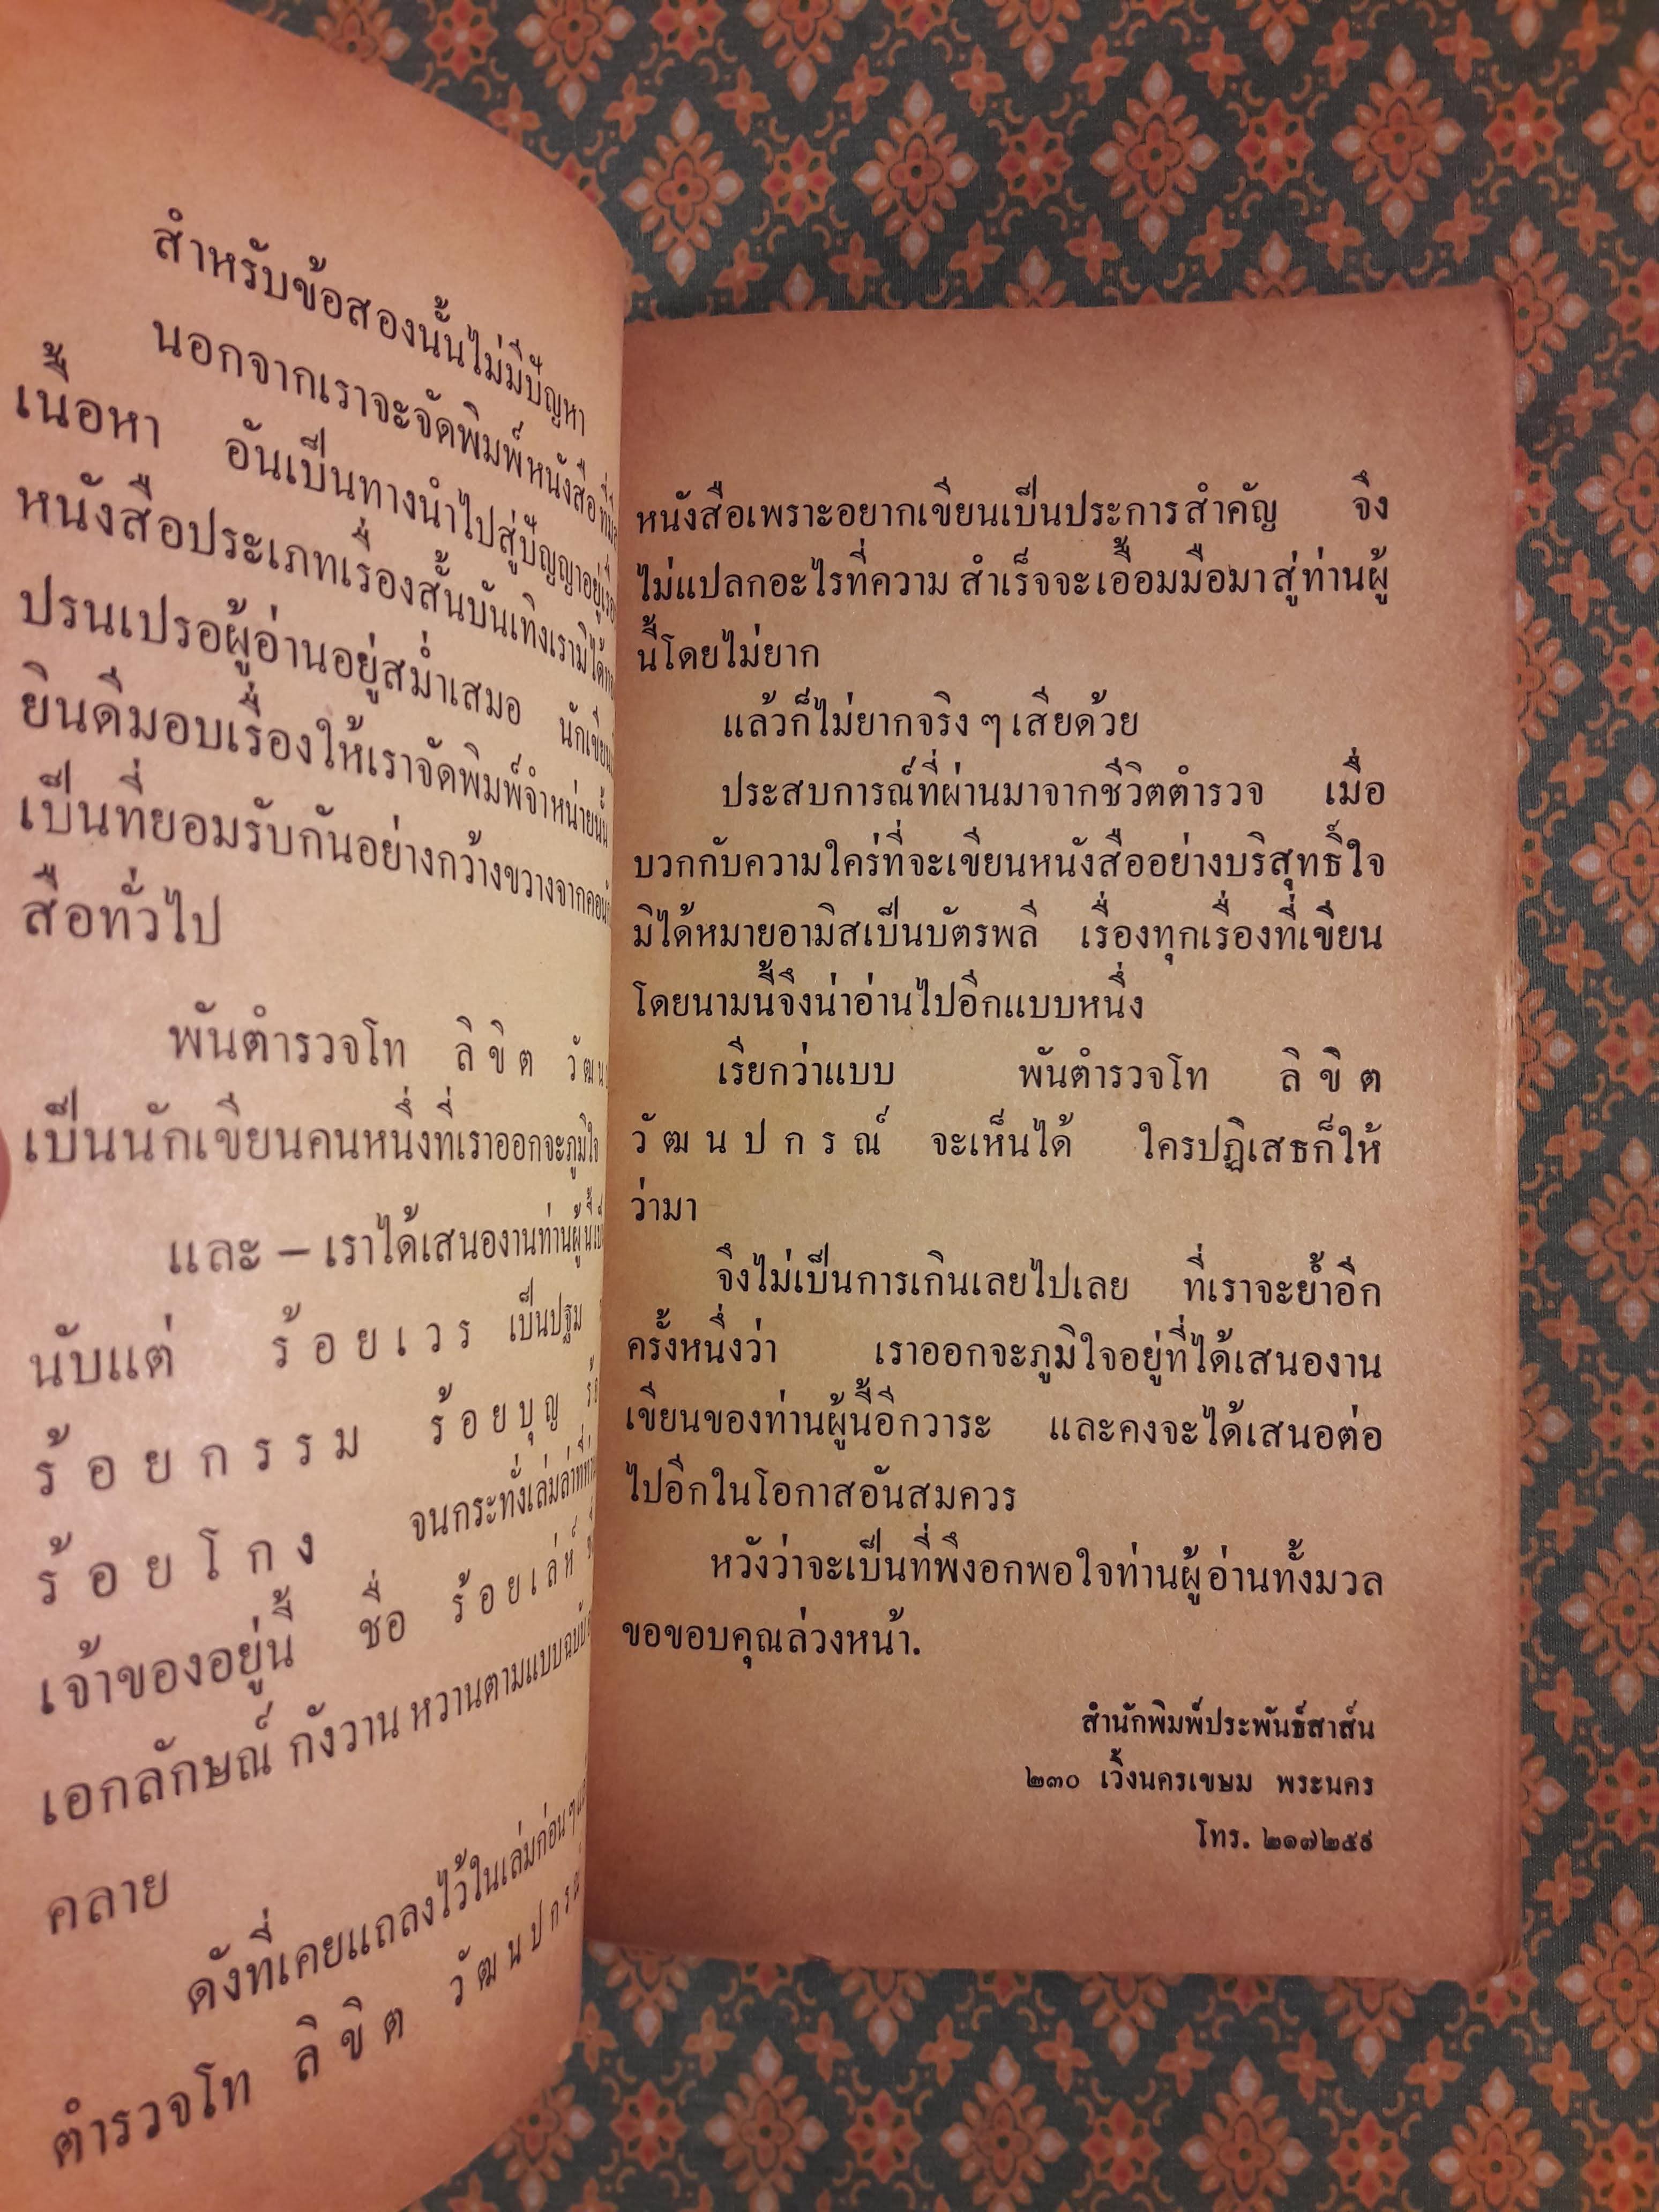 สำหรับข้อสองนั้นไม่มีปัญหา
นอกจากเราจะจัดพิมพ์หนังสือที่มี
เนื้อหา อันเป็นทางนำไปสู่ปัญญาอยู่
หนังสือประเภทเรื่องสั้นบันเทิงเรามิได้
ปรนเปรอผู้อ่านอยู่สม่ำเสมอ นักเขียน
ยินดีมอบเรื่องให้เราจัดพิมพ์จำหน่ายนั้น
เป็นที่ยอมรับกันอย่างกว้างขวางจากคอ
สือทั่วไป
พันตำรวจโท ลิขิต วัฒน
เป็นนักเขียนคนหนึ่งที่เราออกจะภูมิใจ
และ – เราได้เสนองานท่านผู้นี้
นับแต่ ร้อยเวร เป็นปฐม
ร้อยกรรม ร้อยบุญ
ร้อยโกง จนกระทั่งเล่มล่าที่
เจ้าของอยู่นี้ ชื่อ ร้อยเล่ห์
เอกลักษณ์ กังวาน หวานตามแบบฉบับ
คลาย
ดังที่เคยแถลงไว้ในเล่มก่อนๆ
ตำรวจโท ลิขิต วัฒนปกรณ์
หนังสือเพราะอยากเขียนเป็นประการสำคัญ จึง
ไม่แปลกอะไรที่ความ สำเร็จจะเอื้อมมือมาสู่ท่านผู้
นี้โดยไม่ยาก
แล้วก็ไม่ยากจริง ๆ เสียด้วย
ประสบการณ์ที่ผ่านมาจากชีวิตตำรวจ เมื่อ
บวกกับความใคร่ที่จะเขียนหนังสืออย่างบริสุทธิ์ใจ
มิได้หมายอามิสเป็นบัตรพลี เรื่องทุกเรื่องที่เขียน
โดยนามนี้จึงน่าอ่านไปอีกแบบหนึ่ง
เรียกว่าแบบ พันตำรวจโท ลิขิต
วัฒนปกรณ์ จะเห็นได้ ใครปฏิเสธก็ให้
ว่ามา
จึงไม่เป็นการเกินเลยไปเลย ที่เราจะย้ำอีก
ครั้งหนึ่งว่า เราออกจะภูมิใจอยู่ที่ได้เสนองาน
เขียนของท่านผู้นี้อีกวาระ และคงจะได้เสนอต่อ
ไปอีกในโอกาสอันสมควร
หวังว่าจะเป็นที่พึงอกพอใจท่านผู้อ่านทั้งมวล
ขอขอบคุณล่วงหน้า.
สำนักพิมพ์ประพันธ์สาส์น
๒๓๐ เวิ้งนครเขษม พระนคร
โทร. ๒๑๗๒๕๙